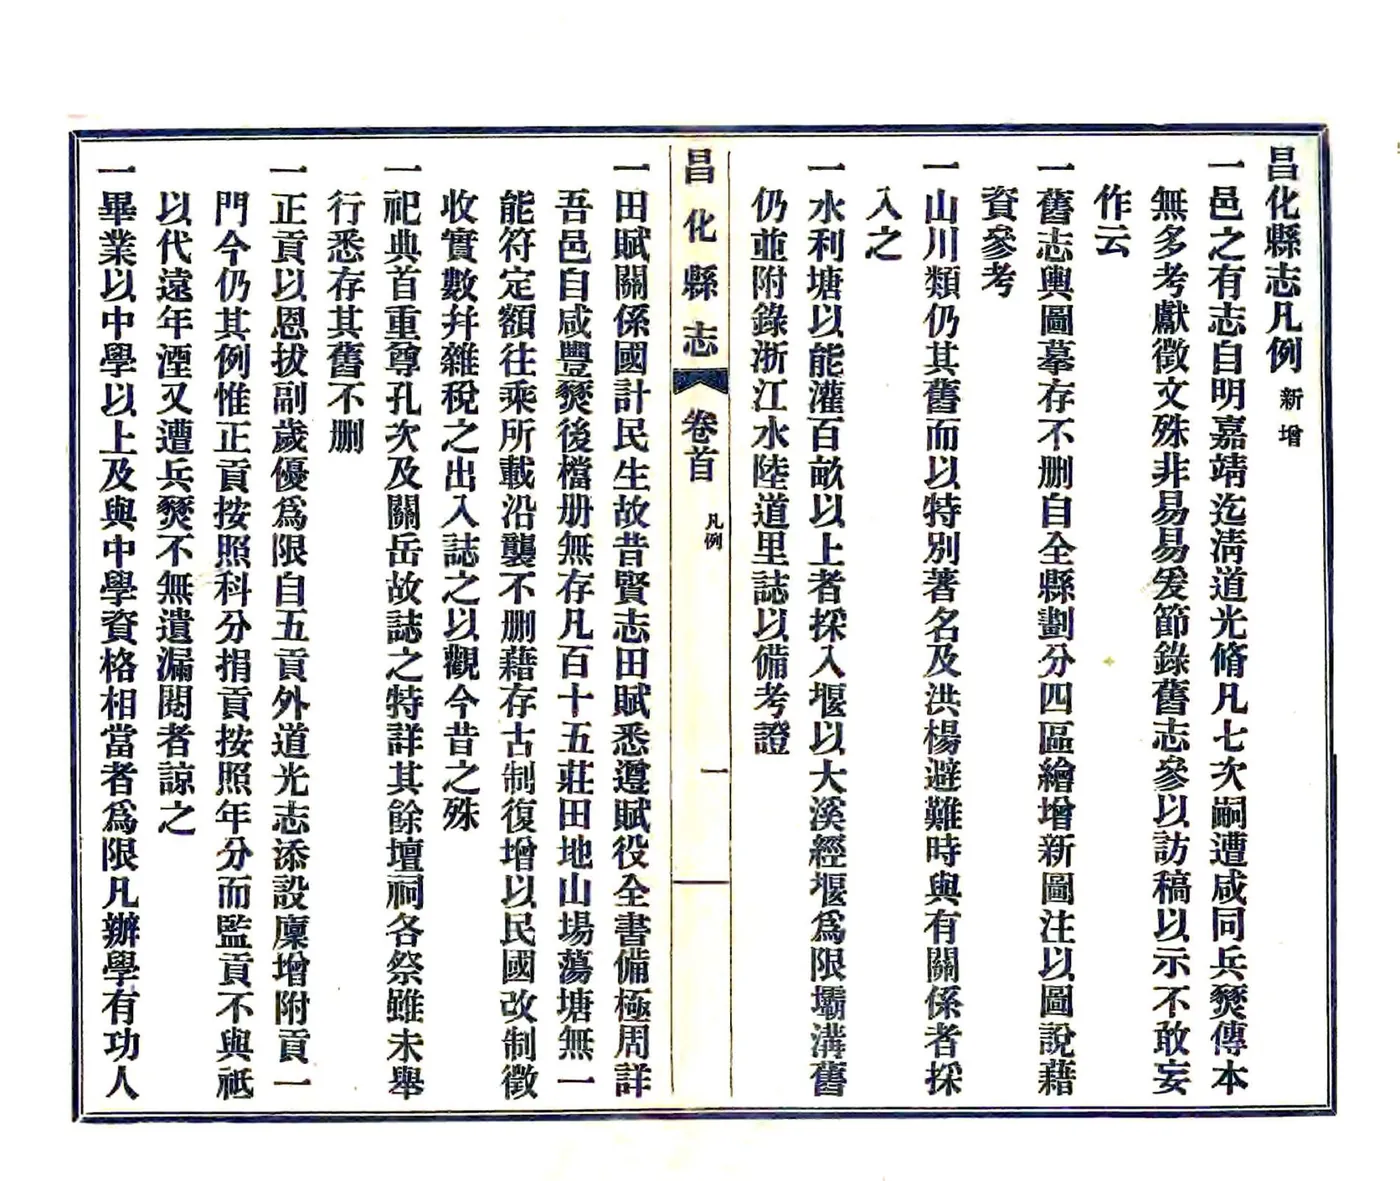 昌化縣志凡例 新增
一邑之有志自明嘉靖迄淸道光脩凡七次嗣遭咸同兵燹傳本
無多考獻徵文殊非易易爰節錄舊志參以訪稿以示不敢妄
作云
一舊志輿圖摹存不刪自全縣劃分四區繪增新圖注以圖說藉
資參考
一山川類仍其舊而以特別著名及洪楊避難時與有關係者採
入之
一水利塘以能灌百畝以上者採入堰以大溪經堰爲限壩溝舊
仍並附錄浙江水陸道里誌以備考證
昌化縣志 卷首 凡例 一
一田賦關係國計民生故昔賢志田賦悉遵賦役全書備極周詳
吾邑自咸豐燹後檔册無存凡百十五莊田地山場蕩塘無一
能符定額往乘所載沿襲不刪藉存古制復增以民國改制徵
收實數幷雜稅之出入誌之以觀今昔之殊
一祀典首重尊孔次及關岳故誌之特詳其餘壇祠各祭雖未舉
行悉存其舊不刪
一正貢以恩拔副歲優爲限自五貢外道光志添設廩增附貢一
門今仍其例惟正貢按照科分捐貢按照年分而監貢不與祗
以代遠年湮又遭兵燹不無遺漏閱者諒之
一畢業以中學以上及與中學資格相當者爲限凡辦學有功人